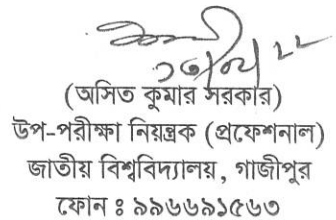 (অসিত কুমার সরকার)
উপ-পরীক্ষা নিয়ন্ত্রক (প্রফেশনাল)
জাতীয় বিশ্ববিদ্যালয়, গাজীপুর
ফোন ঃ ৯৯৬৬৯১৫৬৩